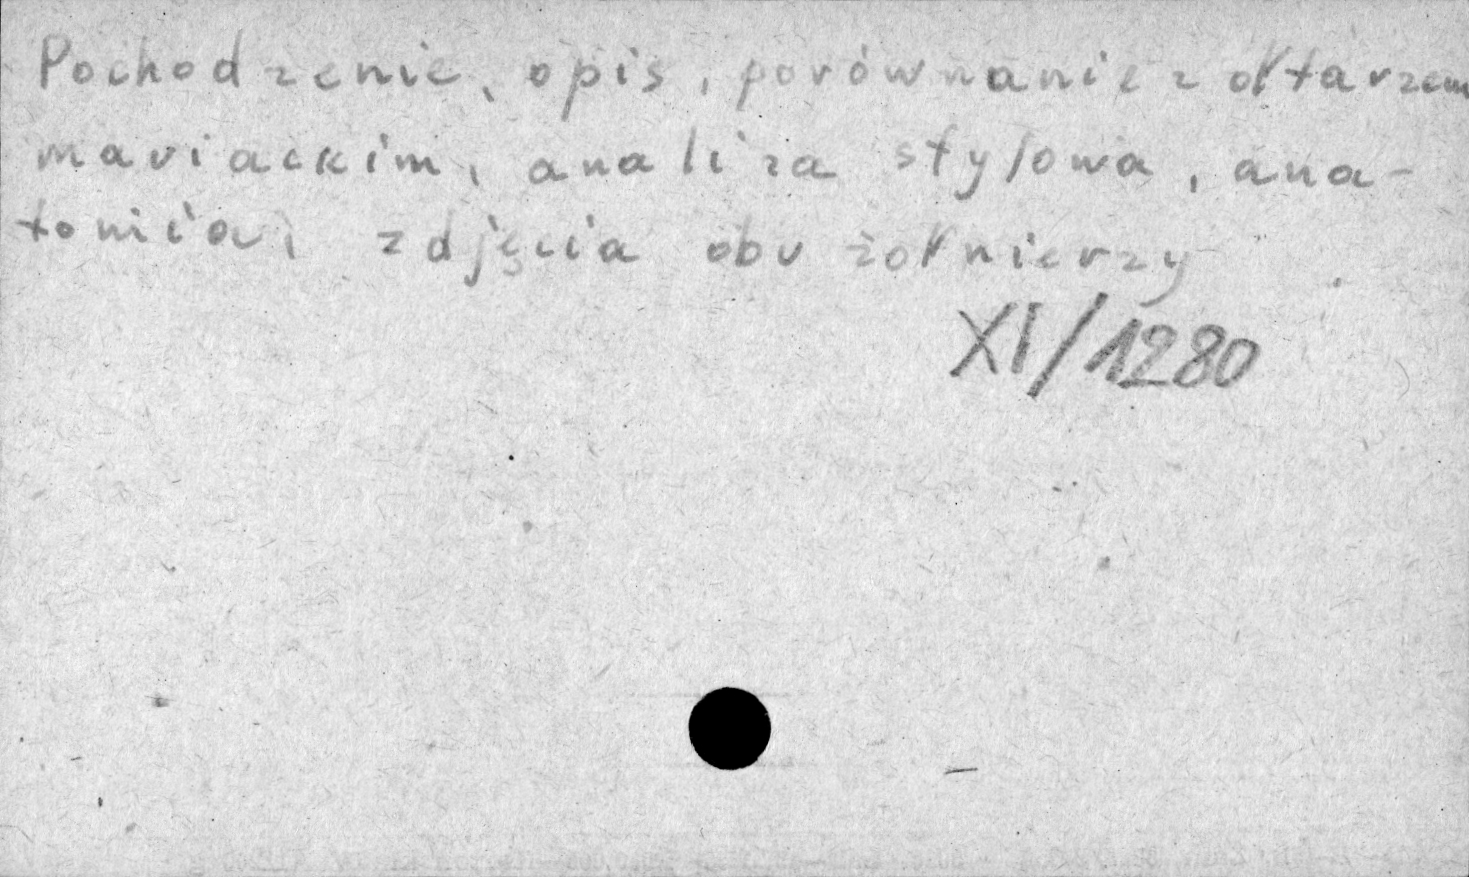 Pochodzenie, opis, porównanie z ołtarzem
mariackim, analiza stylowa, ana-
tomia, zdjęcia obu żołnierzy
XI/1280